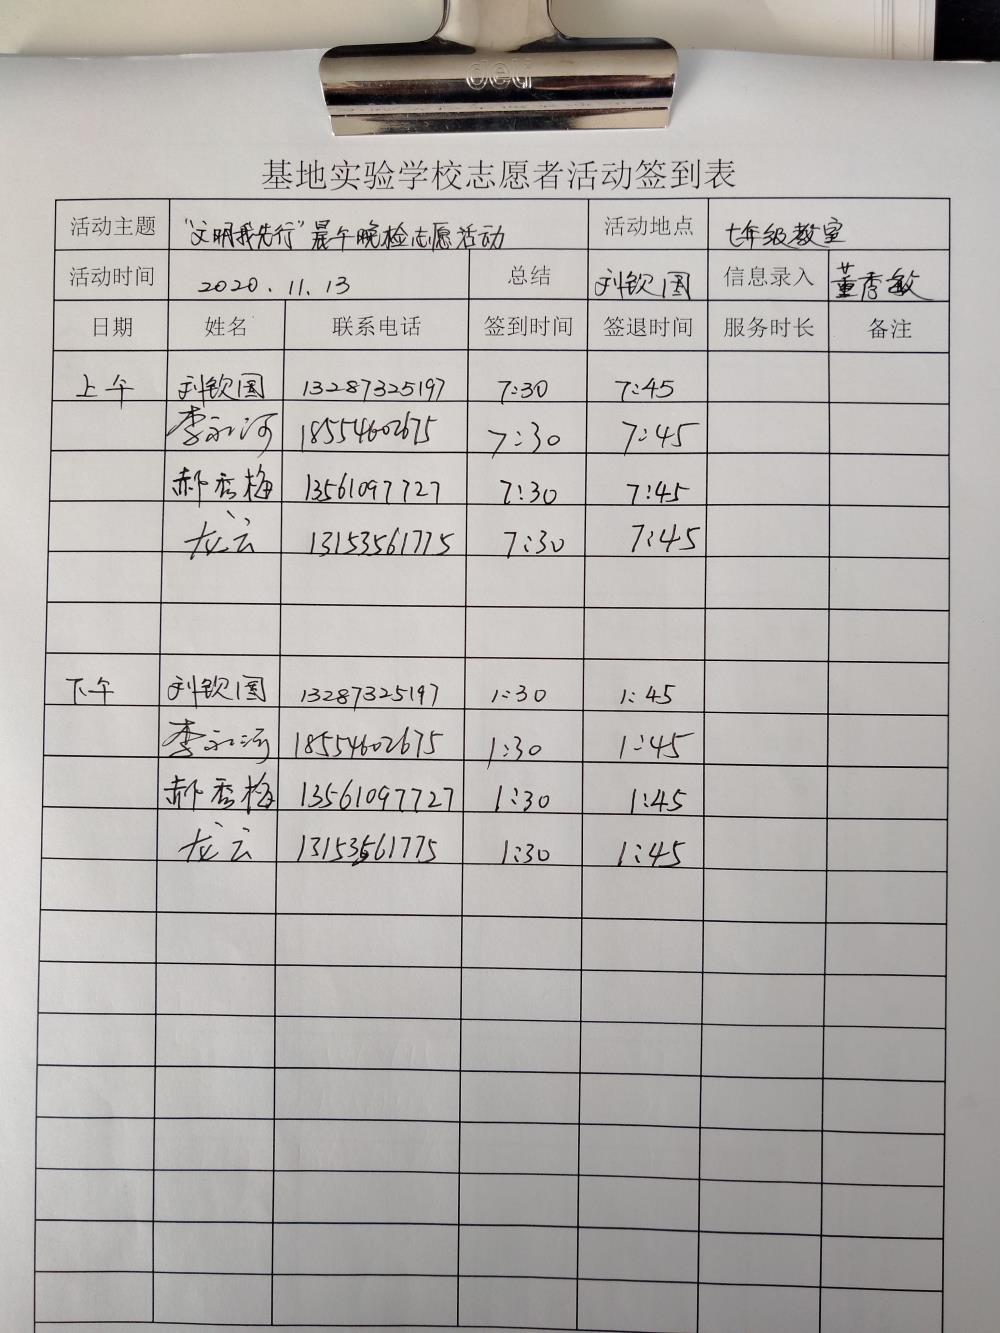 deli
基地实验学校志愿者活动签到表
活动主题 “文明我先行”晨午晚检志愿活动 活动地点 七年级教室
活动时间 2020.11.13 总结 刘钦国 信息录入 董秀敏
日期 姓名 联系电话 签到时间 签退时间 服务时长 备注
上午 刘钦国 13287325197 7:30 7:45
李永河 18554602675 7:30 7:45
郝秀梅 13561097727 7:30 7:45
龙云 13153561775 7:30 7:45
下午 刘钦国 13287325197 1:30 1:45
李永河 18554602675 1:30 1:45
郝秀梅 13561097727 1:30 1:45
龙云 13153561775 1:30 1:45